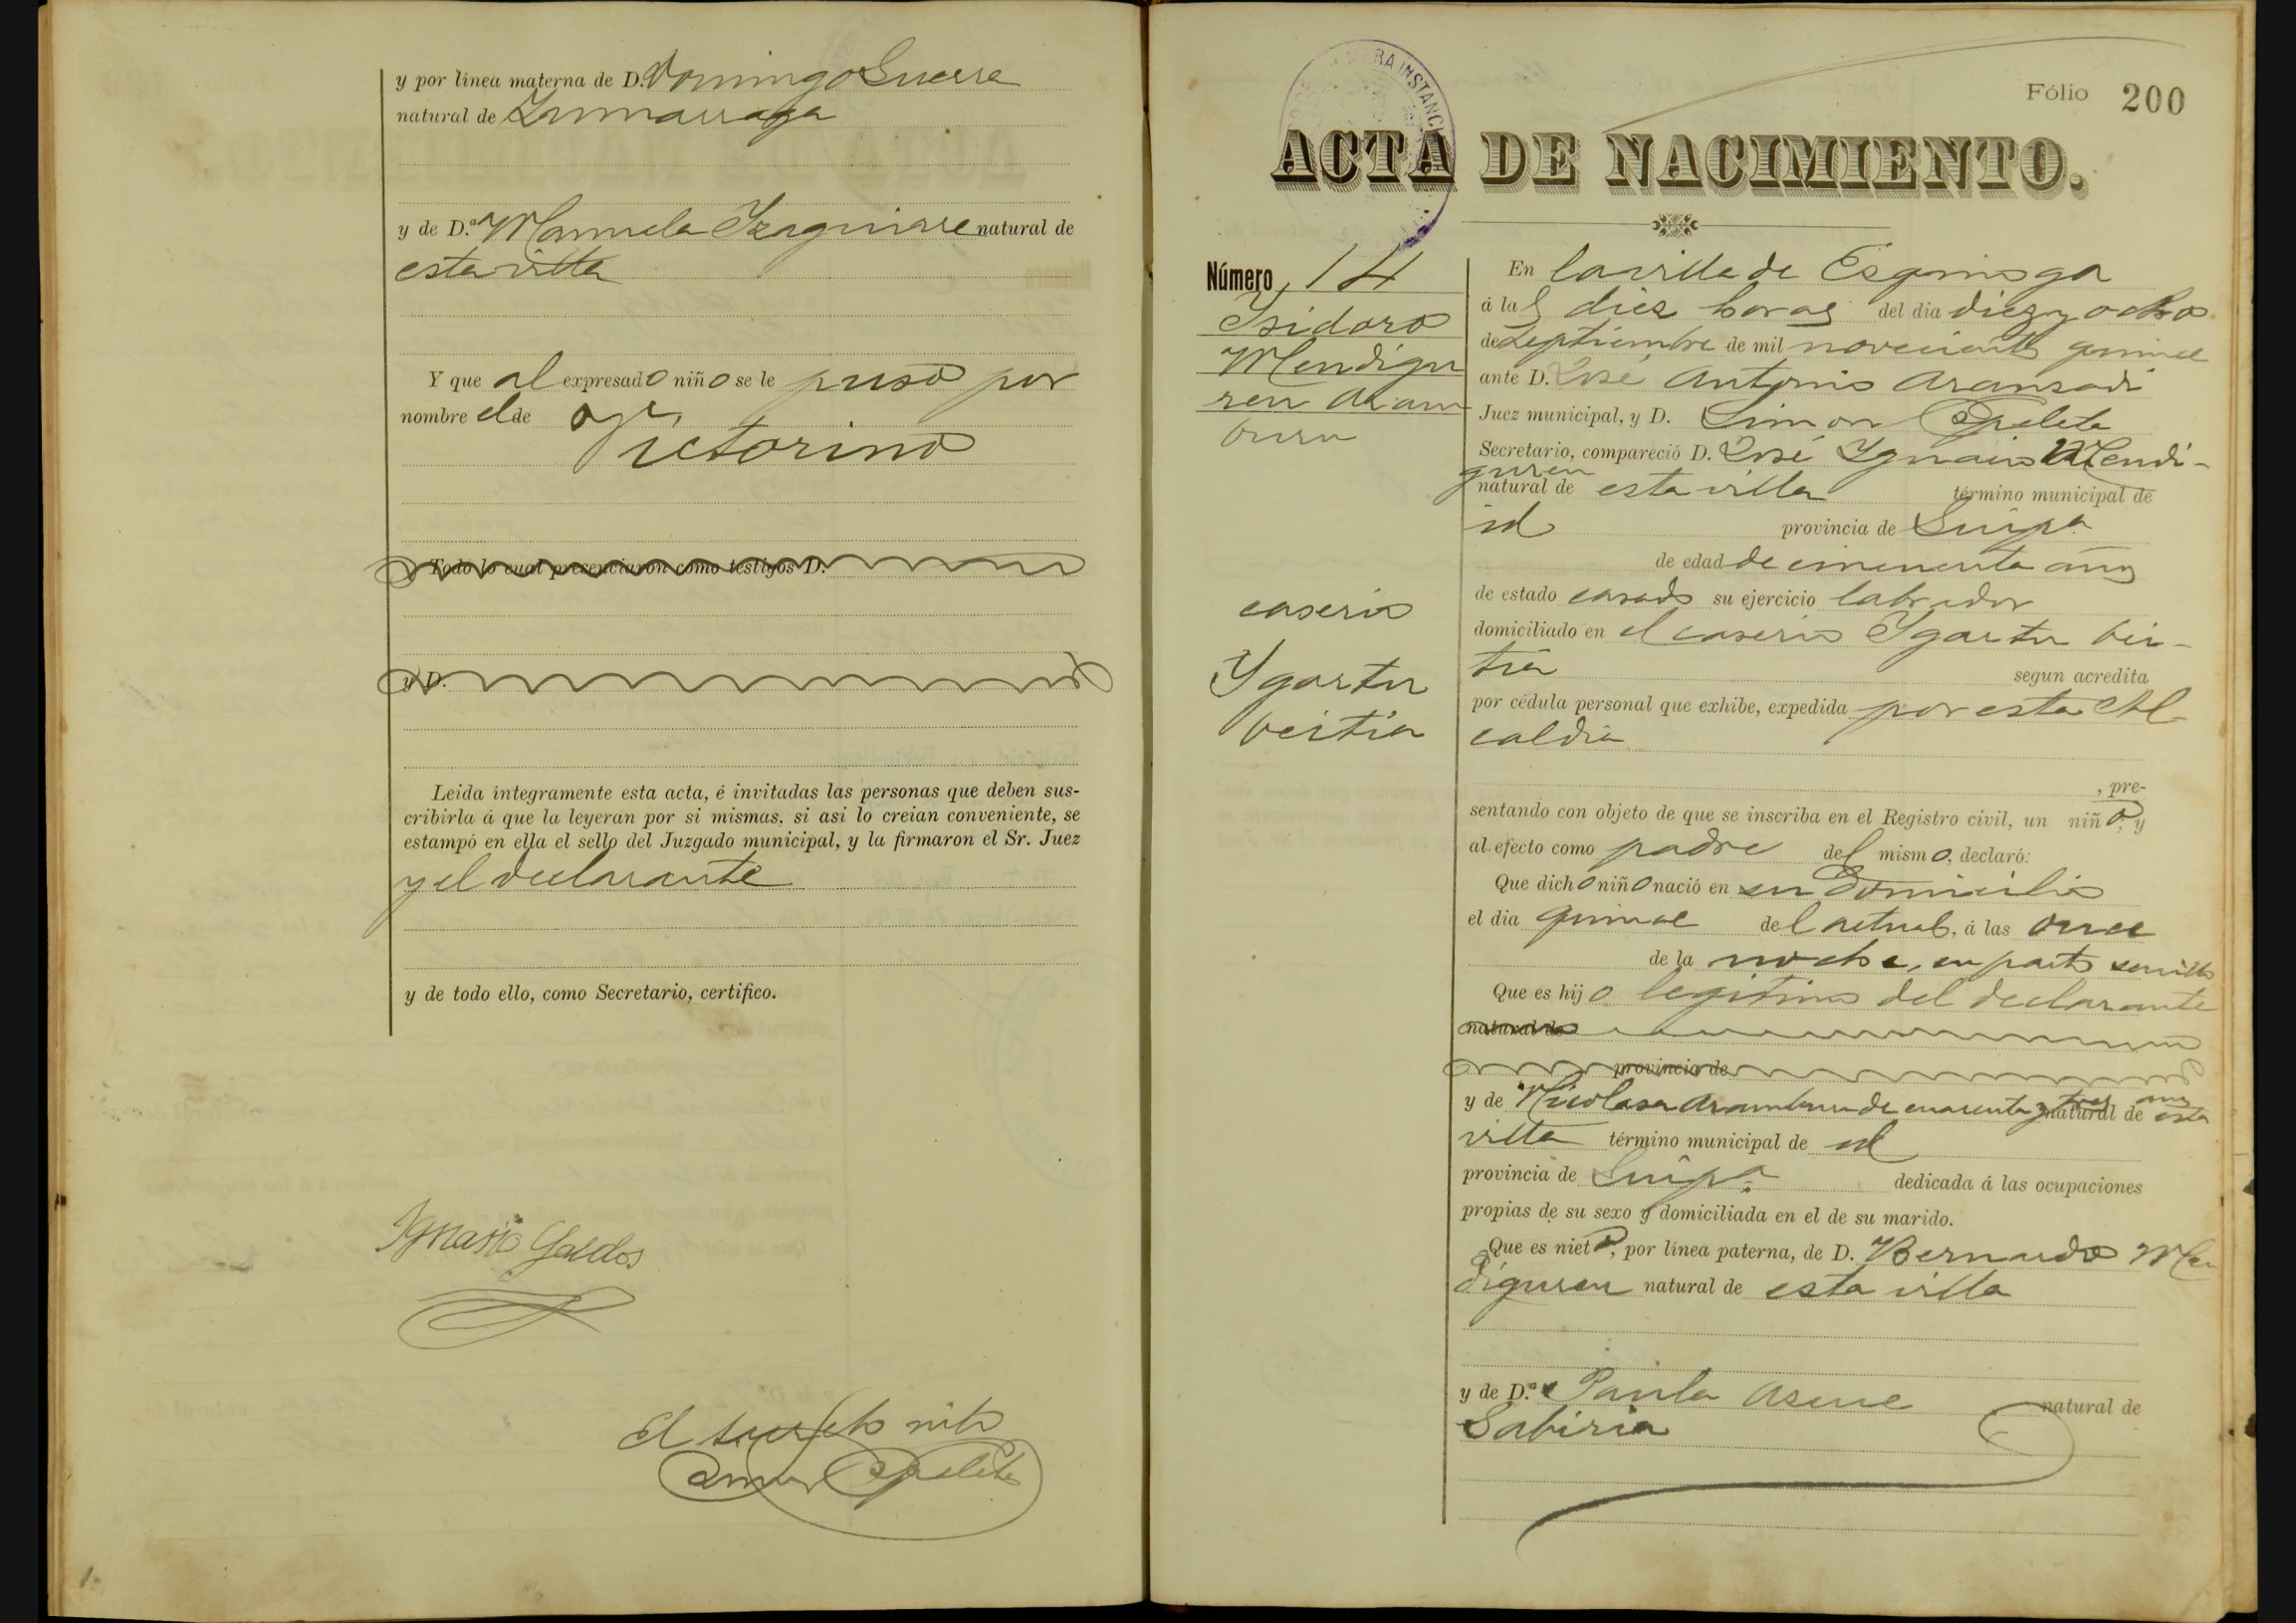 y por línea materna de D. Domingo Guerra
natural de Zumarraga
y de D.ª Manuela Yzaguirre natural de
esta villa
Y que al expresado niño se le puso por
nombre el de
Victorino
Todo lo cual presenciaron como testigos D.
y D.
Leida íntegramente esta acta, é invitadas las personas que deben sus-
cribirla á que la leyeran por si mismas, si asi lo creian conveniente, se
estampó en ella el sello del Juzgado municipal, y la firmaron el Sr. Juez
y el declarante
y de todo ello, como Secretario, certifico.
Ignasio Galdos
El
Simon Epelete
Fólio 200
RA INSTANC
ACTA DE NACIMIENTO.
Número 14
Isidoro
Mendigu
ren Aram
buru
caserio
Ygartu
beitia
En la villa de Esquioga
á las diez horas del dia diez y ocho
de Septiembre de mil novecientos quince
ante D. José Antonio Aransadi
Juez municipal, y D. Simon Epelete
Secretario, compareció D. José Ygnacio Mendi-
guren
natural de esta villa término municipal de
id provincia de Guipª
de edad de cincuenta años
de estado casado su ejercicio labrador
domiciliado en el caserio Ygartu bei-
tia segun acredita
por cédula personal que exhibe, expedida por esta Al-
caldia
, pre-
sentando con objeto de que se inscriba en el Registro civil, un niño, y
al efecto como padre del mismo, declaró:
Que dicho niño nació en su domicilio
el dia quince del actual, á las once
de la noche, en parto sencillo
Que es hijo legitimo del declarante
natural de
provincia de
y de Nicolasa Aramburu de cuarenta y tres años natural de esta
villa término municipal de id
provincia de Guipª dedicada á las ocupaciones
propias de su sexo y domiciliada en el de su marido.
Que es nieto, por línea paterna, de D. Bernardo Men
diguren natural de esta villa
y de D.ª Paula Ascue natural de
Gabiria